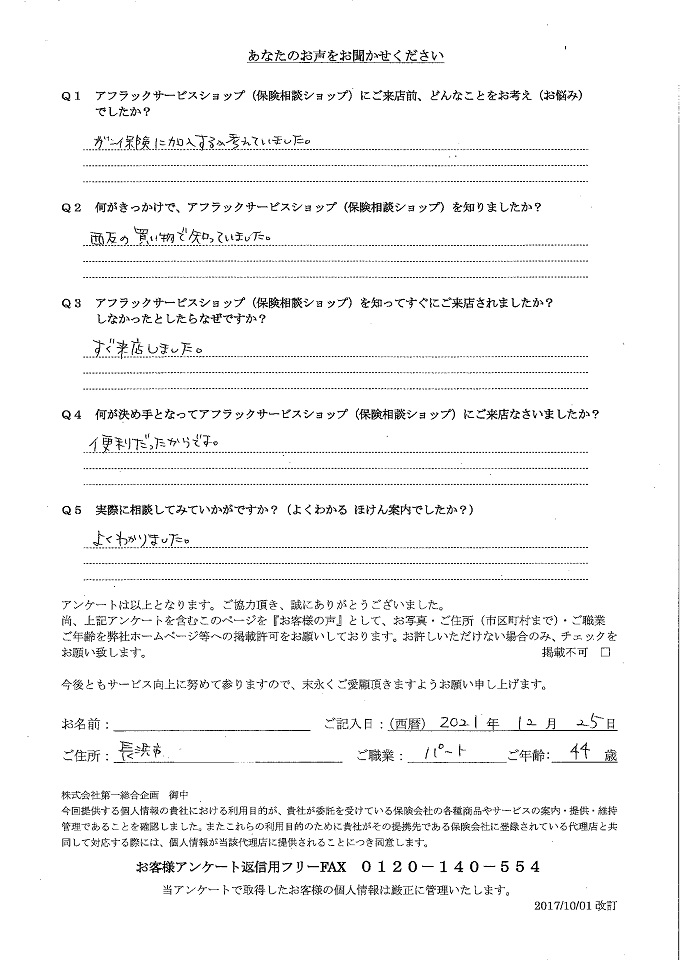 あなたのお声をお聞かせください
Q1 アフラックサービスショップ（保険相談ショップ）にご来店前、どんなことをお考え（お悩み）
でしたか？
ガン保険に加入するか考えていました。
Q2 何がきっかけで、アフラックサービスショップ（保険相談ショップ）を知りましたか？
西友の買い物で知っていました。
Q3 アフラックサービスショップ（保険相談ショップ）を知ってすぐにご来店されましたか？
しなかったとしたらなぜですか？
すぐ来店しました。
Q4 何が決め手となってアフラックサービスショップ（保険相談ショップ）にご来店なさいましたか？
便利だったからです。
Q5 実際に相談してみていかがですか？（よくわかる ほけん案内でしたか？）
よくわかりました。
アンケートは以上となります。ご協力頂き、誠にありがとうございました。
尚、上記アンケートを含むこのページを『お客様の声』として、お写真・ご住所（市区町村まで）・ご職業
ご年齢を弊社ホームページ等への掲載許可をお願いしております。お許しいただけない場合のみ、チェックを
お願い致します。 掲載不可 □
今後ともサービス向上に努めて参りますので、末永くご愛顧頂きますようお願い申し上げます。
お名前： ご記入日：（西暦） 2021 年 12 月 25 日
ご住所： 長浜市 ご職業： パート ご年齢： 44 歳
株式会社第一総合企画 御中
今回提供する個人情報の貴社における利用目的が、貴社が委託を受けている保険会社の各種商品やサービスの案内・提供・維持
管理であることを確認しました。またこれらの利用目的のために貴社がその提携先である保険会社に登録されている代理店と共
同して対応する際には、個人情報が当該代理店に提供されることにつき同意します。
お客様アンケート返信用フリーFAX 0120－140－554
当アンケートで取得したお客様の個人情報は厳正に管理いたします。
2017/10/01 改訂